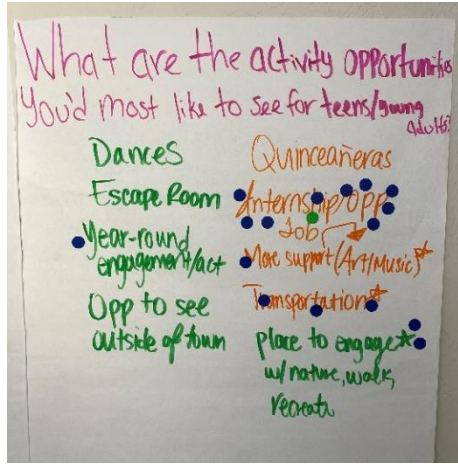 What are the activity opportunities
you'd most like to see for teens/young
Adults?
Dances
Escape Room
Year-round
engagement/act
Opp to see
outside of town
Quinceañeras
Internship/Opp
Job
More support (Art/Music)
Transportation
place to engage
w/nature, walk,
recreate